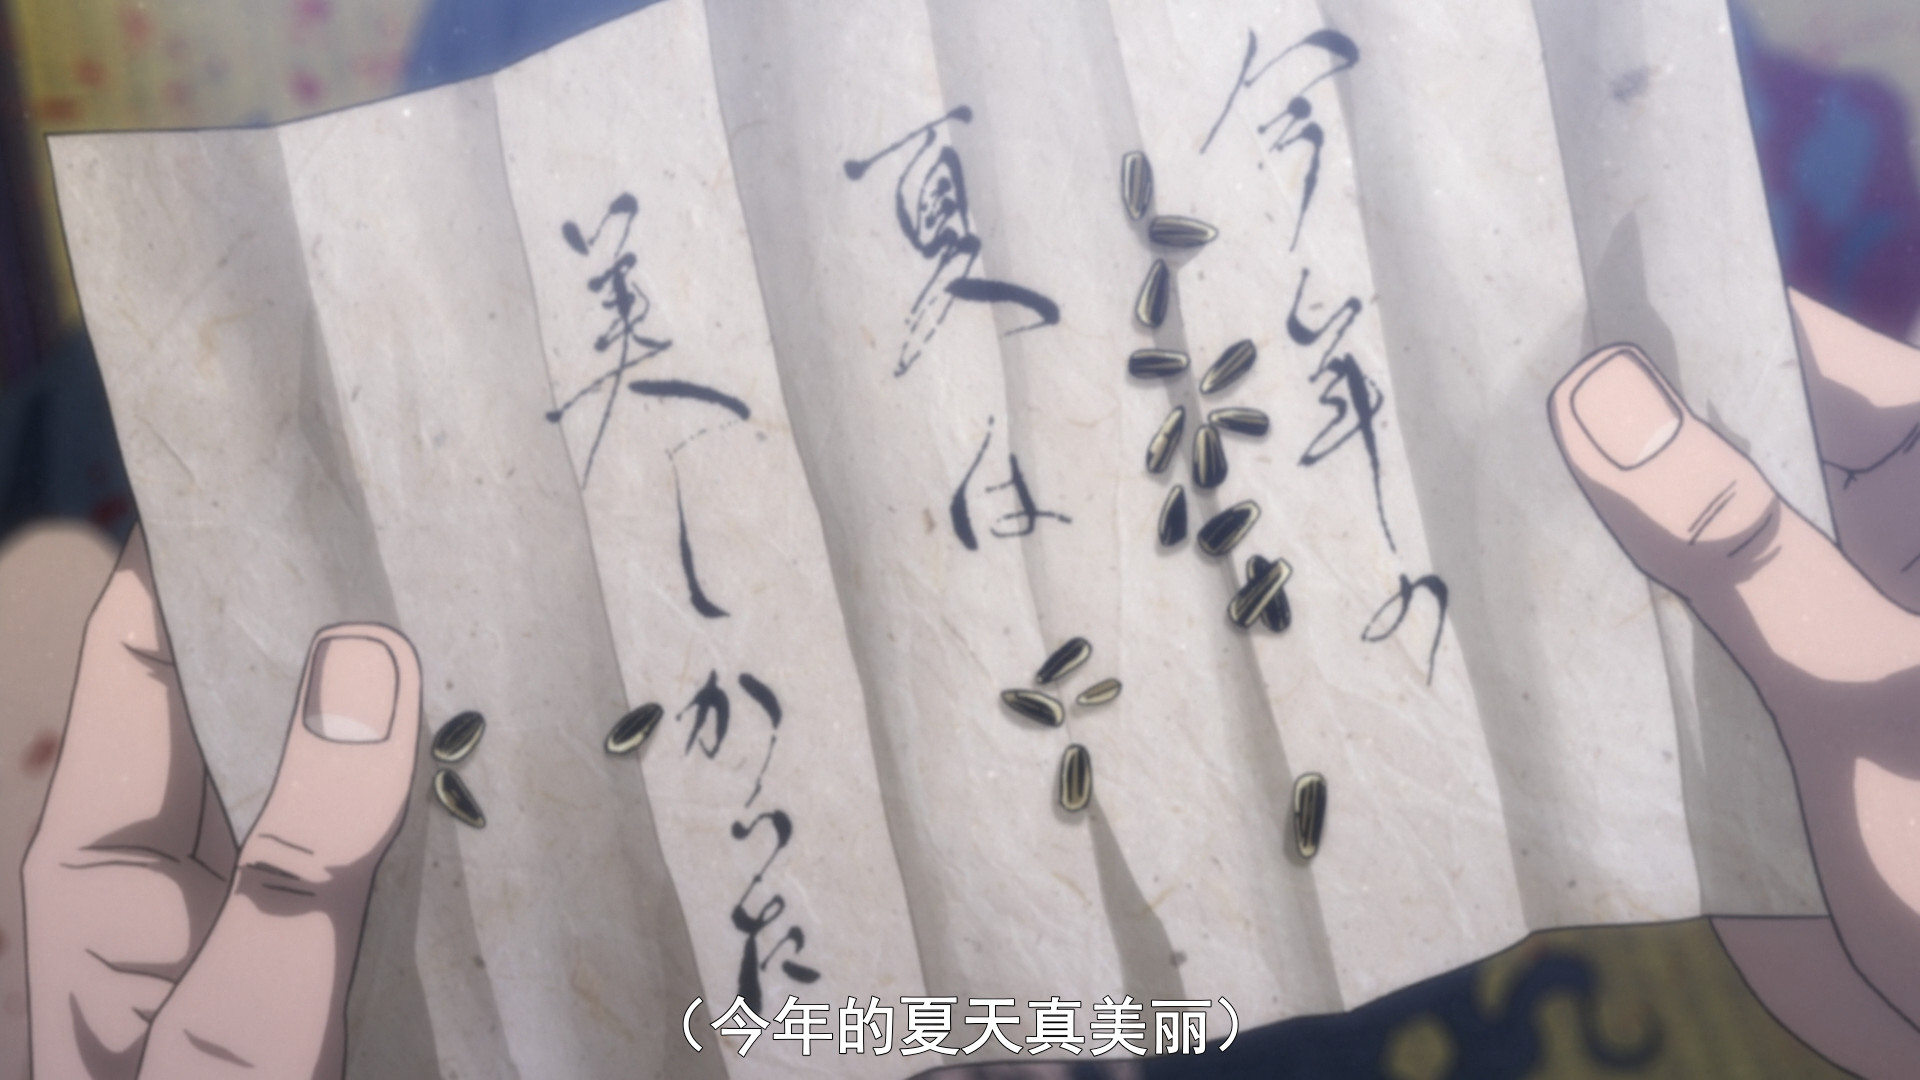 今年の
夏は
美しかった
（今年的夏天真美丽）